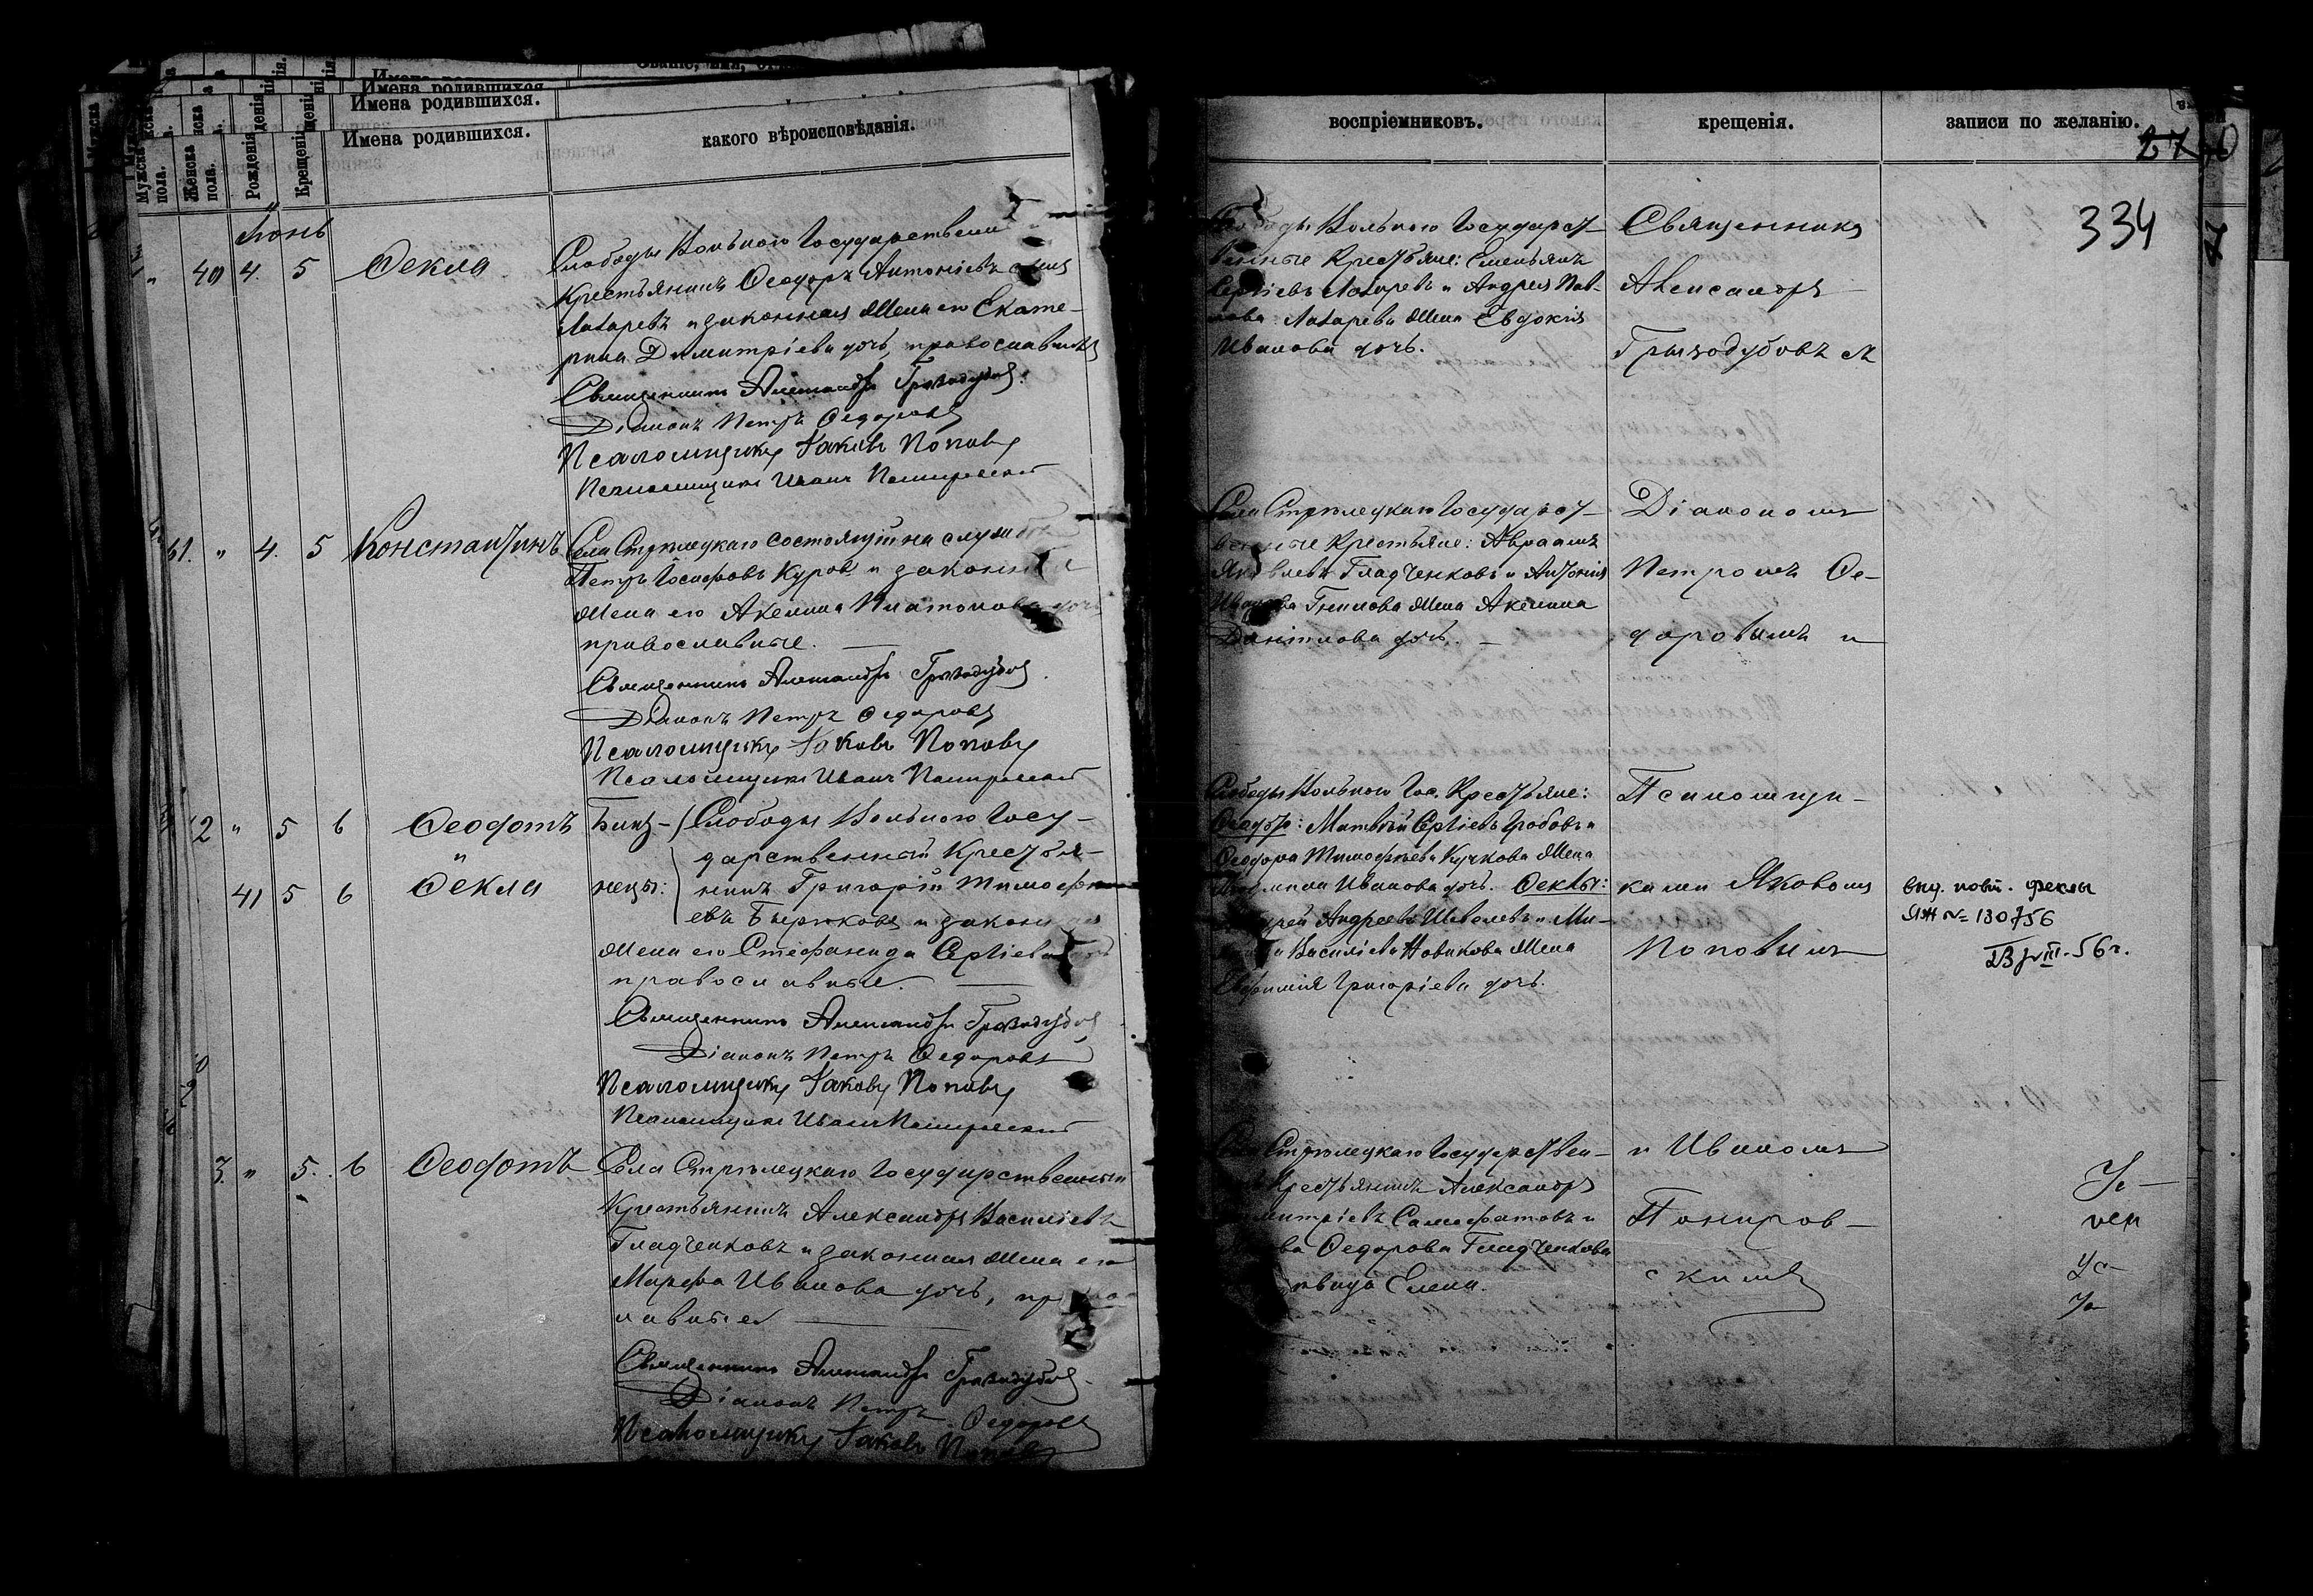 Имена родившихся.
Имена родившихся.
какого вѣроисповѣданія.
Мужска пола.
Женска пола.
Рожденія
Крещенія
Іюнь
" 40 4. 5 Ѳекла
Слободы Вольного Государствен
Крестьянинъ Ѳеодоръ Антоніевъ сынъ
Лазаревъ и законная жена его Екате-
рина Димитріева дочь, православные
Священникъ Александръ Грызодубовъ.
Діаконъ Петръ Ѳедоровъ
Псаломщикъ Іаковъ Поповъ
Псаломщикъ Иванъ Понировскій
41. " 4. 5 Константинъ
Села Стрѣлецкаго состоящій на службѣ
Петръ Іосифовъ Куровъ и законная
жена его Акелина Платонова дочь
православные.
Священникъ Александръ Грызодубовъ.
Діаконъ Петръ Ѳедоровъ
Псаломщикъ Іаковъ Поповъ
Псаломщикъ Иванъ Понировскій
42 " 5 6 Ѳеодотъ
" 41 5 6 Ѳекла
Близ-
нецы:
Слободы Вольного Госу-
дарственный Крестья-
нинъ Григорій Тимофе-
евъ Бирюковъ и законная
жена его Стефанида Сергіева
православные.
Священникъ Александръ Грызодубовъ
Діаконъ Петръ Ѳедоровъ
Псаломщикъ Іаковъ Поповъ
Псаломщикъ Иванъ Понировскій
3. " 5. 6 Ѳеодотъ
Села Стрѣлецкаго Государственный
Крестьянинъ Александръ Василіевъ
Гладченковъ и законная жена его
Марфа Иванова дочь, правос
лавные
Священникъ Александръ Грызодубовъ.
Діаконъ Петръ Ѳедоровъ
Псаломщикъ Іаковъ Поповъ
воспріемниковъ.
крещенія.
записи по желанію.
27
334
Слободы Вольного Государст-
венные Крестьяне: Емельянъ
Сергіевъ Лазаревъ и Андрея Пав-
лова Лазарева жена Евдокія
Иванова дочь.
Священникъ
Александръ
Грызодубовъ съ
Села Стрѣлецкаго Государст-
венные Крестьяне: Авраамъ
Яковлевъ Гладченковъ и Антонія
Иванова Гнилова жена Акелина
Даніилова дочь.
Діакономъ
Петромъ Ѳе-
доровымъ и
Слободы Вольного Гос. Крестьяне:
Ѳеодота: Матвѣй Сергіевъ Гробовъ и
Ѳеодора Тимофѣева Кучкова жена
Иванова дочь. Ѳеклы:
Андрей Андреевъ Шевелевъ и Ми-
Василіева Новикова жена
Евфимія Григоріева дочь.
Псаломщи-
ками Яковомъ
Поповымъ
выд. повт. Феклы
ЯЖ № 130756
23/VIII-56г.
Села Стрѣлецкаго Государствен-
Крестьянинъ Александръ
Димитріевъ Самофатовъ и
Ѳедорова Гладченкова
двица Елена.
и Иваномъ
Понировс-
скимъ